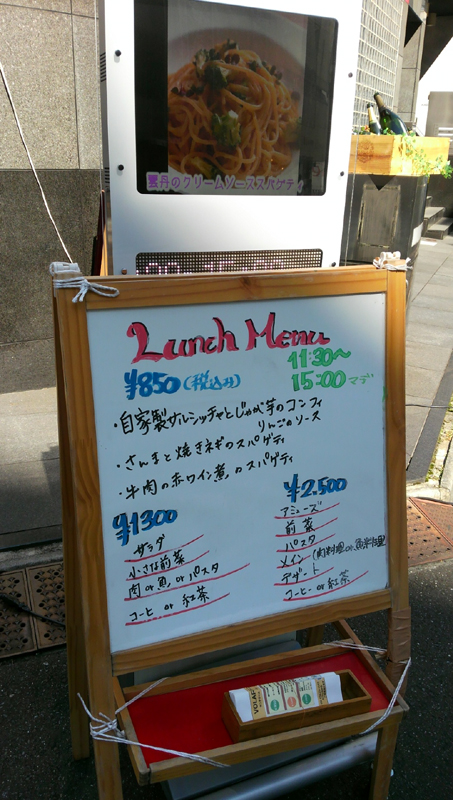 雲丹のクリームソーススパゲティ
Lunch Menu
11:30〜
¥850(税込み)
15:00マデ
・自家製サルシッチャとじゃが芋のコンフィ
りんごのソース
・さんまと焼きネギのスパゲティ
・牛肉の赤ワイン煮のスパゲティ
¥1300
サラダ
小さな前菜
肉or魚orパスタ
コーヒーor紅茶
¥2.500
アミューズ
前菜
パスタ
メイン(肉料理or魚料理
デザート
コーヒーor紅茶